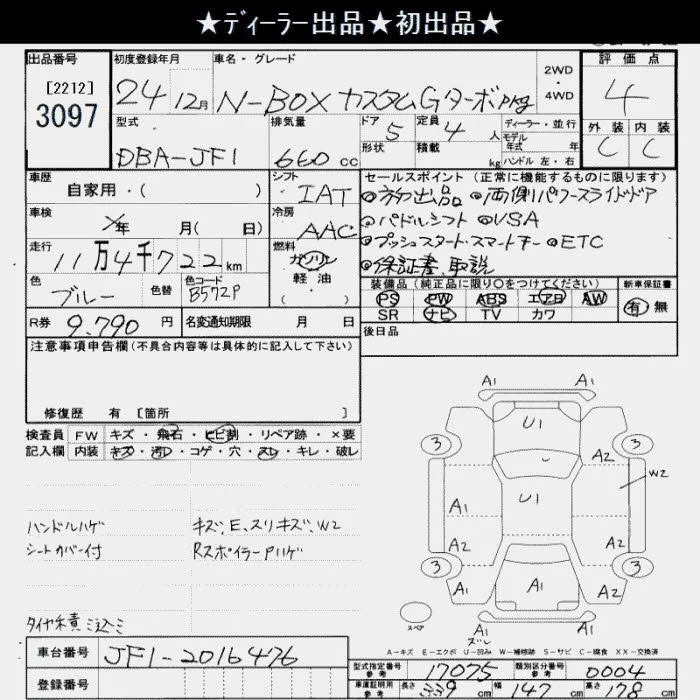 ★ディーラー出品★初出品★
出品番号 初度登録年月 車名・グレード 2WD・4WD 評価点
[2212]
3097
24 12月 N-BOX カスタムGターボpkg 4
型式 排気量 ドア 5 定員 4人 ディーラー・並行
モデル年式 年
外装 内装
DBA-JF1 660cc 形状 積載 kg ハンドル 左・右 C C
車歴 自家用・( ) シフト IAT
セールスポイント(正常に機能するものに限ります)
◎初出品 ◎両側パワースライドドア
車検 年 月( 日) 冷房 AAC
◎パドルシフト ◎VSA
走行 11万4千722km 燃料 ガソリン
◎プッシュスタート・スマートキー ◎ETC
軽油
( ・ )
◎保証書、取説
色 ブルー 色替 色コード B572P
装備品(純正品に限り○をつけてください) 新車保証書
PS PW ABS エアB AW 有 無
SR ナビ TV カワ
R券 9,790円 名変通知期限 月 日
後日品
注意事項申告欄(不具合内容等は具体的に記入して下さい)
修復歴 有 [箇所 ]
検査員 FW キズ・飛石・ヒビ割・リペア跡・×要
記入欄 内装 キズ・汚レ・コゲ・穴・スレ・キレ・破レ
ハンドルハゲ キズ、E、スリキズ、W2
シートカバー付 RスポイラーPハゲ
タイヤ未積ミ込ミ
A1 A1
U1
3 3
A2 W2
A1 U1
A2 A2
3 3
A1 A1 A2
スペア
A1 A1
ズレ
A-キズ E-エクボ U-凹み W-補修跡 S-サビ C-腐食 XX-交換済
車台番号 JF1-2016476
型式指定番号 参考 17075 類別区分番号 参考 0004
登録番号
車庫証明用 参考 長さ 339cm 幅 147cm 高さ 178cm